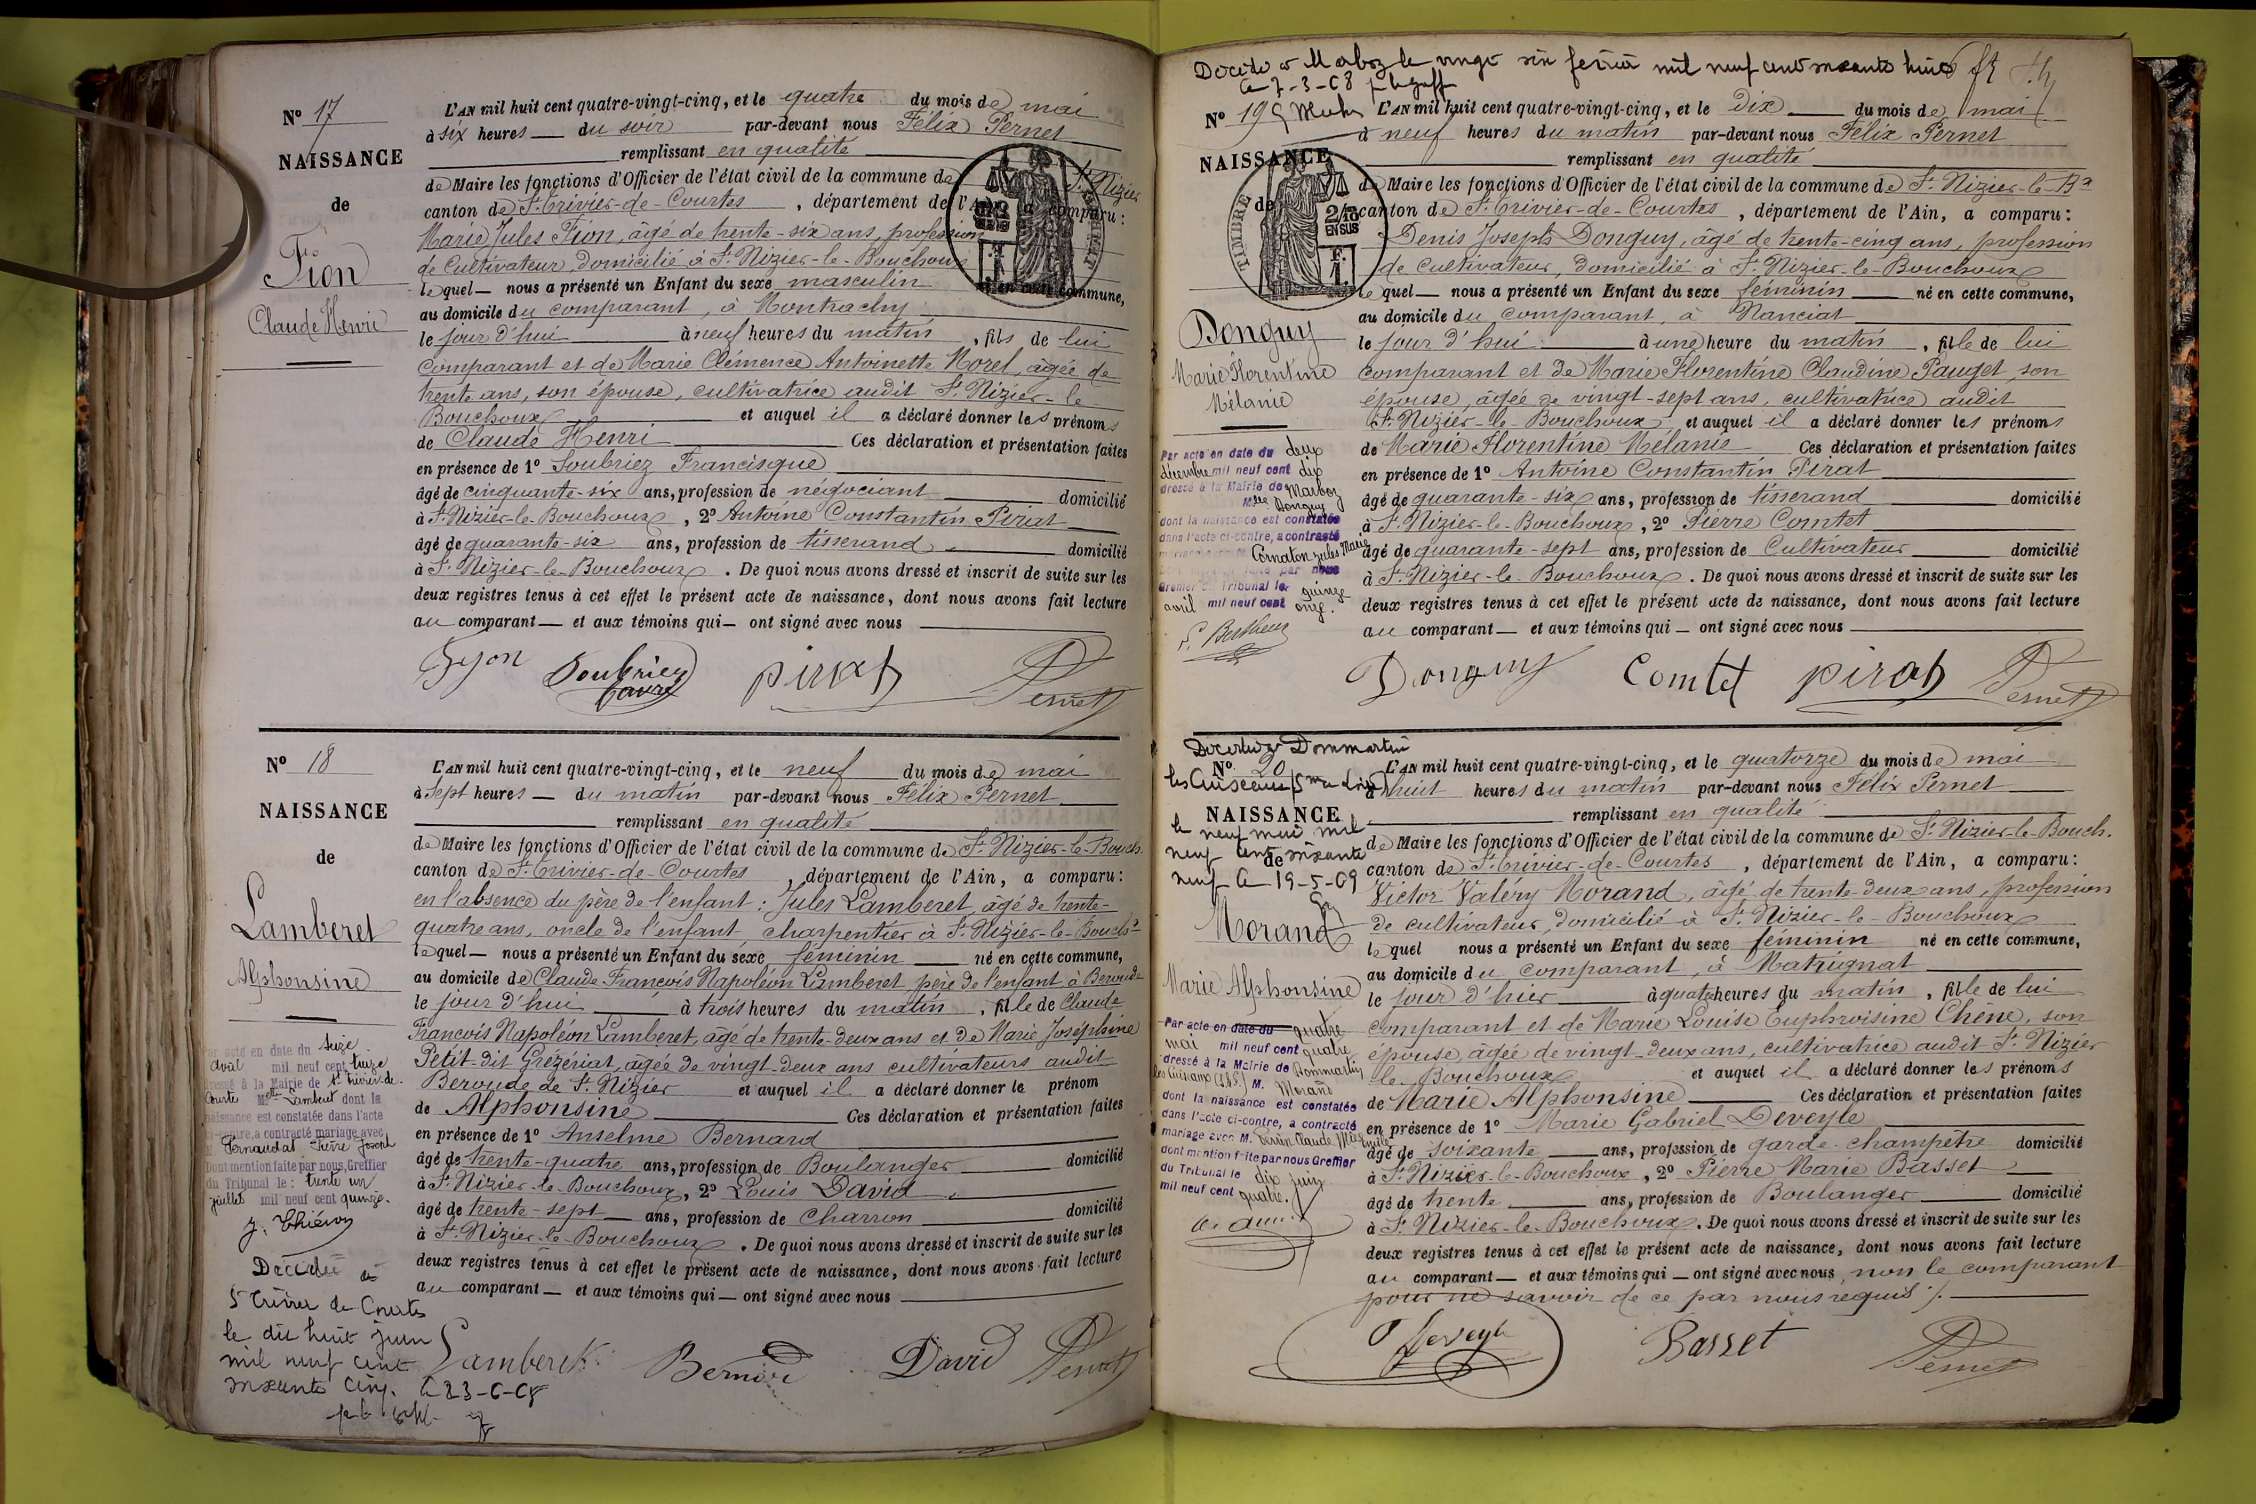 Nº 17
NAISSANCE
de
Fion
Claude Henri
L'AN mil huit cent quatre-vingt-cinq, et le quatre du mois de mai
à six heures du soir par-devant nous Félix Pernet
remplissant en qualité
de Maire les fonctions d'Officier de l'état civil de la commune de St Nizier
canton de St Trivier-de-Courtes, département de l'Ain, a comparu :
Marie Jules Fion, âgé de trente-six ans, profession
de Cultivateur, domicilié à St Nizier-le-Bouchoux
lequel nous a présenté un Enfant du sexe masculin né en cette commune,
au domicile du comparant, à Montrachy
le jour d'hui à neuf heures du matin, fils de lui
comparant et de Marie Clémence Antoinette Morel, âgée de
trente ans, son épouse, cultivatrice audit St Nizier-le-
Bouchoux et auquel il a déclaré donner les prénoms
de Claude Henri Ces déclaration et présentation faites
en présence de 1º Soubriez Francisque
âgé de cinquante-six ans, profession de négociant domicilié
à St Nizier-le-Bouchoux, 2º Antoine Constantin Pirat
âgé de quarante-six ans, profession de tisserand domicilié
à St Nizier-le-Bouchoux. De quoi nous avons dressé et inscrit de suite sur les
deux registres tenus à cet effet le présent acte de naissance, dont nous avons fait lecture
au comparant et aux témoins qui ont signé avec nous
Fyon Soubriez pirat Pernet
Nº 18
NAISSANCE
de
Lamberet
Alphonsine
Par acte en date du seize
avril mil neuf cent treize
dressé à la Mairie de St Trivier-de-
Courte Melle Lamberet dont la
naissance est constatée dans l'acte
ci-contre, a contracté mariage avec
M. Pernaudat Pierre Joseph
Dont mention faite par nous, Greffier
du Tribunal le : trente un
juillet mil neuf cent quinze.
Décédée à
St Trivier de Courtes
le dix huit juin
mil neuf cent
soixante cinq.
L'AN mil huit cent quatre-vingt-cinq, et le neuf du mois de mai
à sept heures du matin par-devant nous Félix Pernet
remplissant en qualité
de Maire les fonctions d'Officier de l'état civil de la commune de St Nizier-le-Bouch.
canton de St Trivier-de-Courtes, département de l'Ain, a comparu :
en l'absence du père de l'enfant : Jules Lamberet, âgé de trente-
quatre ans, oncle de l'enfant, charpentier à St Nizier-le-Bouchx
lequel nous a présenté un Enfant du sexe féminin né en cette commune,
au domicile de Claude François Napoléon Lamberet père de l'enfant à Beroude
le jour d'hui à trois heures du matin, fille de Claude
François Napoléon Lamberet, âgé de trente-deux ans et de Marie Joséphine
Petit-dit Grézériat, âgée de vingt-deux ans cultivateurs audit
Beroude de St Nizier et auquel il a déclaré donner le prénom
de Alphonsine Ces déclaration et présentation faites
en présence de 1º Anselme Bernard
âgé de trente-quatre ans, profession de Boulanger domicilié
à St Nizier-le-Bouchoux, 2º Louis David
âgé de trente-sept ans, profession de charron domicilié
à St Nizier-le-Bouchoux. De quoi nous avons dressé et inscrit de suite sur les
deux registres tenus à cet effet le présent acte de naissance, dont nous avons fait lecture
au comparant et aux témoins qui ont signé avec nous
Lamberet Bernard David Pernet
Décédée à Marboz le vingt six février mil neuf cent soixante huit
Nº 19
NAISSANCE
de
TIMBRE
2/10 EN SUS
Donguy
Marie Florentine
Mélanie
Par acte en date du deux
décembre mil neuf cent dix
dressé à la Mairie de Marboz
Melle Donguy
dont la naissance est constatée
dans l'acte ci-contre, a contracté
Greffier du Tribunal le quinze
avril mil neuf cent onze.
L'AN mil huit cent quatre-vingt-cinq, et le dix du mois de mai
à neuf heures du matin par-devant nous Félix Pernet
remplissant en qualité
de Maire les fonctions d'Officier de l'état civil de la commune de St Nizier-le-Bx
canton de St Trivier-de-Courtes, département de l'Ain, a comparu :
Denis Joseph Donguy, âgé de trente-cinq ans, profession
de cultivateur, domicilié à St Nizier-le-Bouchoux
lequel nous a présenté un Enfant du sexe féminin né en cette commune,
au domicile du comparant, à Nanciat
le jour d'hui à une heure du matin, fille de lui
comparant et de Marie Florentine Claudine Pauget, son
épouse, âgée de vingt-sept ans, cultivatrice audit
St Nizier-le-Bouchoux et auquel il a déclaré donner les prénoms
de Marie Florentine Mélanie Ces déclaration et présentation faites
en présence de 1º Antoine Constantin Pirat
âgé de quarante-six ans, profession de tisserand domicilié
à St Nizier-le-Bouchoux, 2º Pierre Comtet
âgé de quarante-sept ans, profession de Cultivateur domicilié
à St Nizier-le-Bouchoux. De quoi nous avons dressé et inscrit de suite sur les
deux registres tenus à cet effet le présent acte de naissance, dont nous avons fait lecture
au comparant et aux témoins qui ont signé avec nous
Donguy Comtet pirat Pernet
Décédée à Dommartin
Nº 20
les Cuiseaux
NAISSANCE
le neuf mai mil
neuf cent soixante
de
neuf le 19-5-69
Morand
Marie Alphonsine
Par acte en date du quatre
mai mil neuf cent quatre
dressé à la Mairie de Dommartin
les Cuiseaux (S&L) M. Morand
dont la naissance est constatée
dans l'acte ci-contre, a contracté
mariage avec M.
dont mention faite par nous Greffier
du Tribunal le dix juin
mil neuf cent quatre.
L'AN mil huit cent quatre-vingt-cinq, et le quatorze du mois de mai
à huit heures du matin par-devant nous Félix Pernet
remplissant en qualité
de Maire les fonctions d'Officier de l'état civil de la commune de St Nizier-le-Bouch.
canton de St Trivier-de-Courtes, département de l'Ain, a comparu :
Victor Valéry Morand, âgé de trente-deux ans, profession
de cultivateur, domicilié à St Nizier-le-Bouchoux
lequel nous a présenté un Enfant du sexe féminin né en cette commune,
au domicile du comparant, à Matrignat
le jour d'hier à quatre heures du matin, fille de lui
comparant et de Marie Louise Euphroisine Chêne, son
épouse, âgée de vingt-deux ans, cultivatrice audit St Nizier
le-Bouchoux et auquel il a déclaré donner les prénoms
de Marie Alphonsine Ces déclaration et présentation faites
en présence de 1º Marie Gabriel Deveyle
âgé de soixante ans, profession de garde-champêtre domicilié
à St Nizier-le-Bouchoux, 2º Pierre Marie Basset
âgé de trente ans, profession de Boulanger domicilié
à St Nizier-le-Bouchoux. De quoi nous avons dressé et inscrit de suite sur les
deux registres tenus à cet effet le présent acte de naissance, dont nous avons fait lecture
au comparant et aux témoins qui ont signé avec nous, non le comparant
pour ne savoir de ce par nous requis
Deveyle Basset Pernet